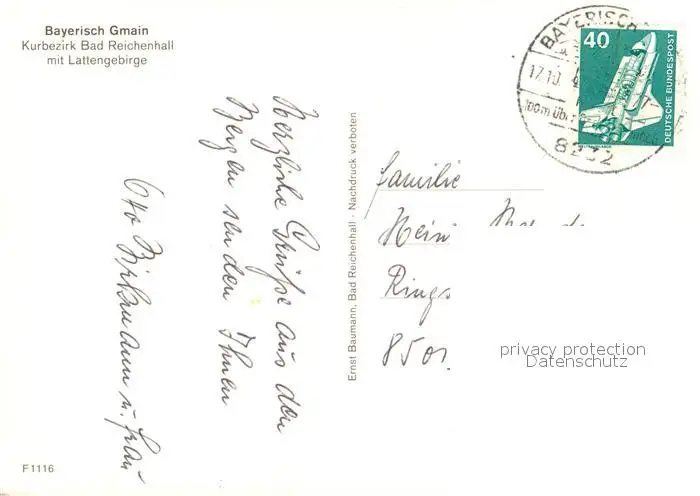 Bayerisch Gmain
Kurbezirk Bad Reichenhall
mit Lattengebirge
Herzliche Grüße aus den
Bergen senden Ihnen
Otto u. Frau
F1116
Ernst Baumann, Bad Reichenhall · Nachdruck verboten
BAYERISCH
17.10.
8232
40
DEUTSCHE BUNDESPOST
Familie
Hein
Rings
850
privacy protection
Datenschutz